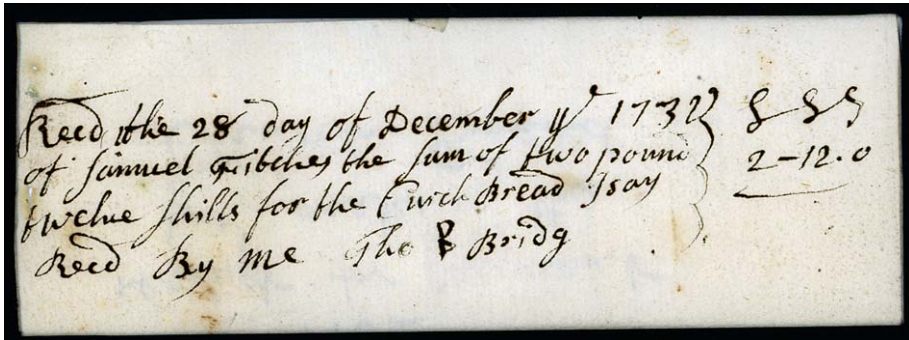 Recd the 28 day of December yr 1732 £ S S
of Samuel the Sum of two pound 2-12.0
twelve Shills for the Curch Bread I say
Recd By me Tho B Bridg